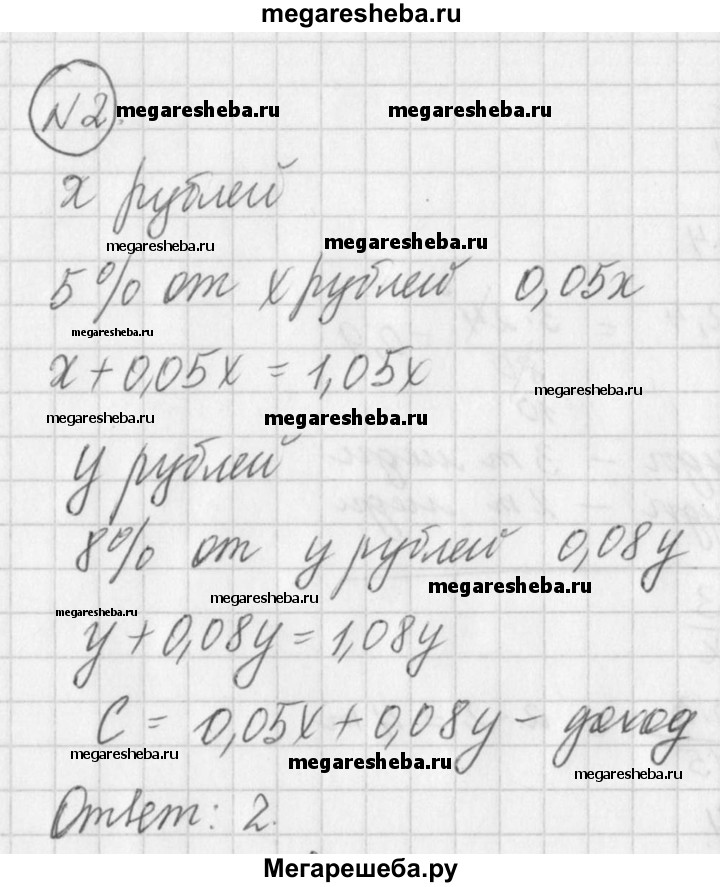 megaresheba.ru
N2. megaresheba.ru megaresheba.ru
x рублей
megaresheba.ru megaresheba.ru
5% от x рублей 0,05x
megaresheba.ru
x + 0,05x = 1,05x
megaresheba.ru
megaresheba.ru megaresheba.ru
y рублей
8% от y рублей 0,08y
megaresheba.ru megaresheba.ru
megaresheba.ru
y + 0,08y = 1,08y
C = 0,05x + 0,08y – доход
megaresheba.ru megaresheba.ru megaresheba.ru
Ответ: 2.
Мегарешеба.ру